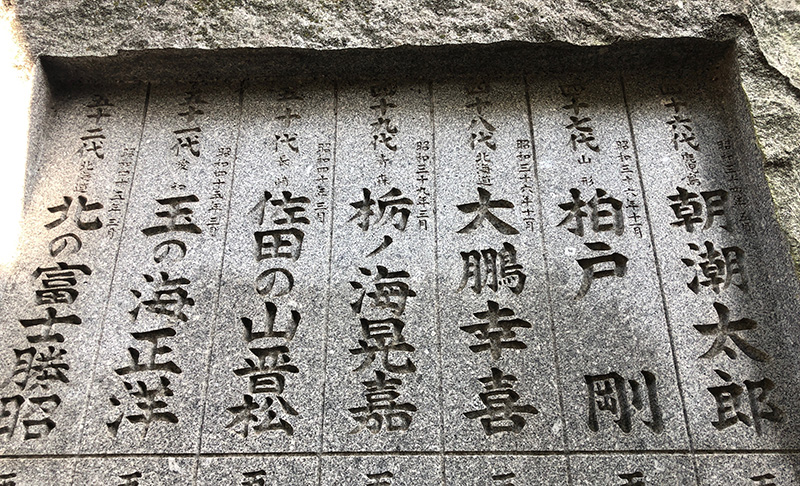 四十六代
朝潮太郎
四十七代 山形
昭和三十六年十一月
柏戸 剛
四十八代 北海道
昭和三十六年十一月
大鵬幸喜
四十九代 青森
昭和三十九年三月
栃ノ海晃嘉
五十代 長崎
佐田の山晋松
五十一代 愛知
昭和四十五年三月
玉の海正洋
五十二代 北海道
昭和四十五年三月
北の富士勝昭